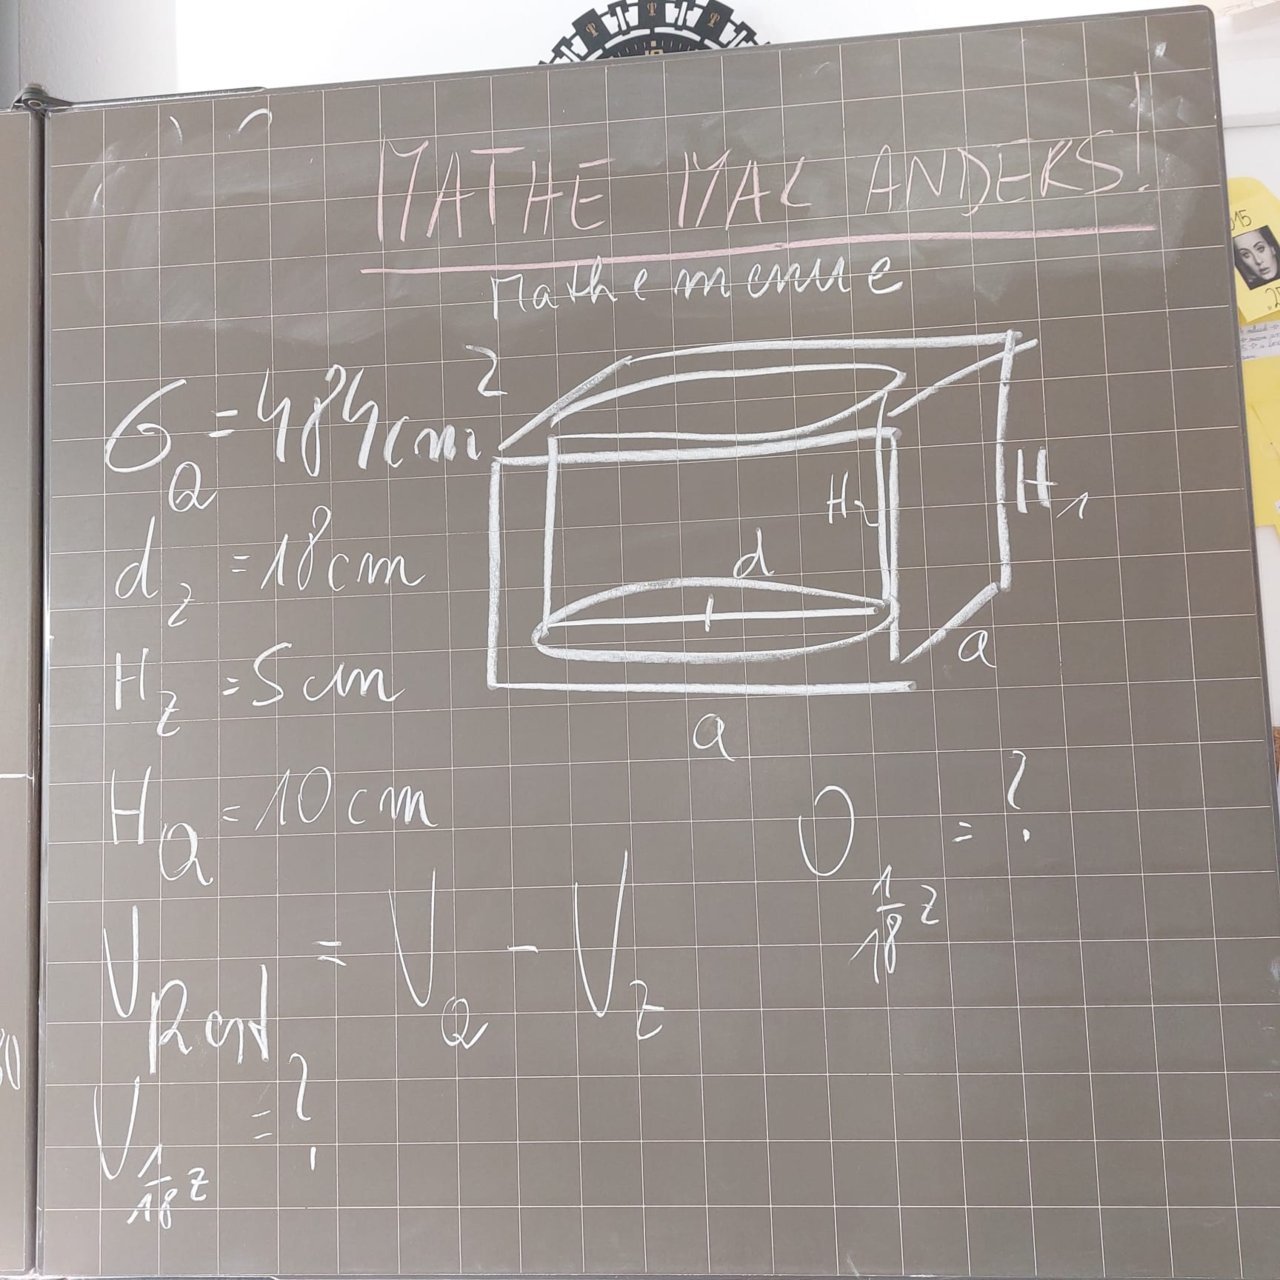 MATHE MAL ANDERS!
Mathemenue
G_Q = 484cm²
d_Z = 18cm
H_Z = 5cm
H_Q = 10cm
V_Rest = V_Q - V_Z
V_1/18 Z = ?
H_2
d
H_1
a
a
O_1/18 Z = ?